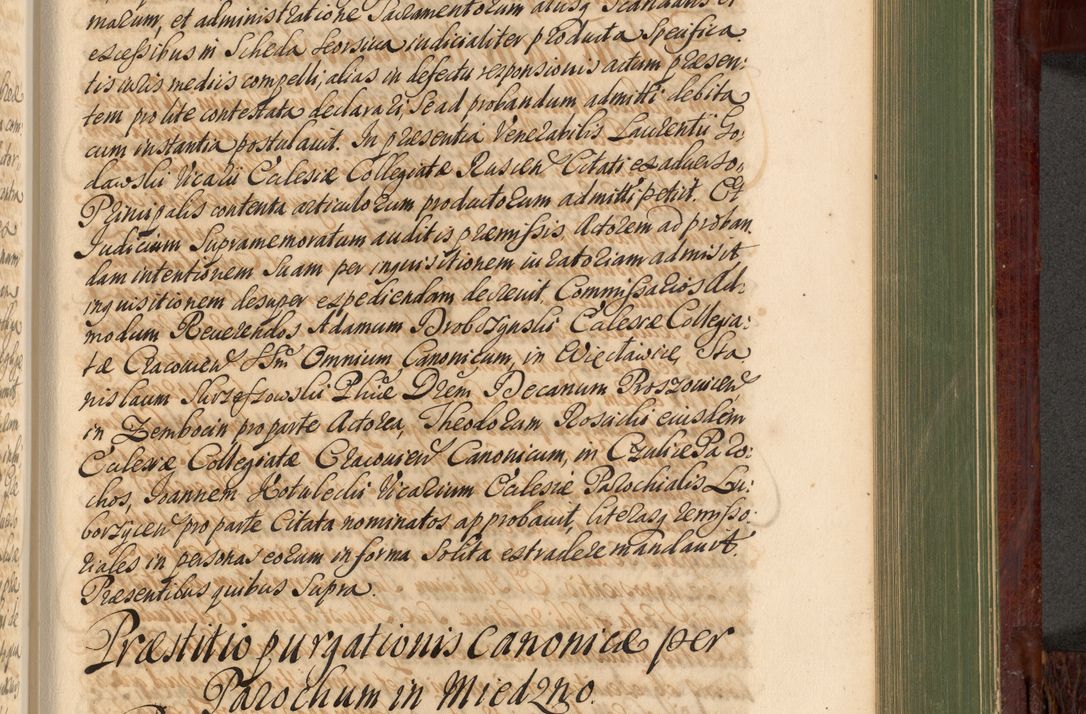 marum, et administratione Sacramentorum aliisq Scandalis et
excessibus in Scheda seorsiva iudicialiter producta specifica
tis iuris mediis compelli; alias in defectu responsionis actum præsen:
tem pro lite contestata declarari, sead, probandum admitti debita
cum instantia postulavit. In præsentia Venerabilis Laurentii Go:
dawski Vicarii Ecclesiæ Collegiatæ Citati ex adverso,
Principalis contenta articulorum productorum admitti petiit. Et
Judicium Supramemoratum auditis præmissis Actorem ad proban
dam intentionem suam per inquisitionem iuratoriam admisit
inquisitionem desuper expediendam decrevit, Commissarios Ad:
modum Reverendos Adamum Drobczynski Ecclesiæ Collegia:
tæ Cracovien SSm Omnium Canonicum, in Więcławice, Sta
nislaum Decanum Proszovicen
in Zembocin, pro parte Actorea, Theodorum Rosicki eiusdem
Ecclesiæ Collegiatæ Cracovien Canonicum, in Czulice Paro:
chos, Joannem Kotulecki Vicarium Ecclesiæ Parochialis Lu:
borzycen pro parte Citata nominatos approbavit, literasq remisso:
riales in personas eorum in forma solita extradere mandavit.
Præsentibus quibus supra.
Præstitio purgationis Canonicæ per
Parochum in Miedzno.